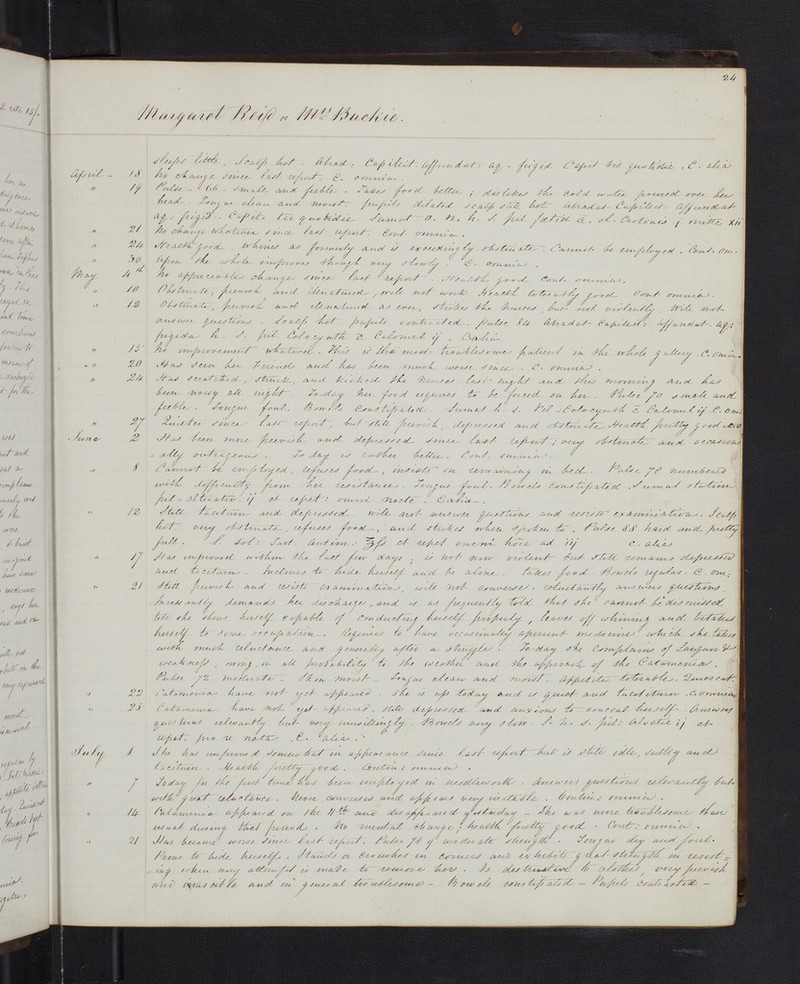 24
Margaret Reid or Mrs Buckie.
sleeps little, Scalp hot. Abrad. Capillit. affundat: aq. frigid Capit bis quotidie. C. alia
April - 18 No change since last report. C. omnia.
" 19 Pulse - 66 - small and feeble. Takes food better; dislikes the cold water poured over her
head. Tongue clean and moist, pupils dilated scalp still hot Abradat. Capillit. Affundat
aq: frigid. Capiti ter quotidie Sumat o. n. h. s. pil foetid c. ol. Crotonis j mitte xii
" 21 No change whatever since last report. Cont omnia.
" 24 Health good. whines as formerly and is exceedingly obstinate. Cannot be employed. Cont. om.
" 30 Upon the whole improves though very slowly. C. omnia.
May 4th No appreciable change since last report. Health good Cont. omnia.
" 10 Obstinate, peevish and illnatured, will not work Health tolerably good Cont omnia.
" 12 Obstinate, peevish and illnatured as ever, strikes the Nurses, but not violently. Will not
answer questions. Scalp hot pupils contracted. Pulse 84 Abradat Capillit: affundat. aq:
frigida h. s. pil Colocynth c Calomel ij. C. alia
" 15 No improvement whatever. This is the most troublesome patient in the whole gallery. C. omnia.
" 20 Has seen her Friends and has been much worse since. C. omnia.
" 24 Has scratched, struck, and kicked the Nurses last night and this morning and has
been noisy all night. To-day her food requires to be forced on her. Pulse 70 small and
feeble. Tongue foul. Bowels constipated. Sumat h. s. Pil. Colocynth c Calomel ij C. om.
" 27 Quieter since last report, but still peevish, depressed and obstinate Health pretty good
June 2 Has been more peevish and depressed since last report; very obstinate and occasion
-ally outrageous. To day is rather better. Cont. omnia.
" 8 Cannot be employed, refuses food, insists on remaining in bed. Pulse 70 numbered
with difficulty from her resistance. Tongue foul. Bowels constipated Sumat statim
pil: alterativ ij et repet: omni nocte. C alia.
" 12 Still taciturn and depressed will not answer questions and resists examinations. Scalp
hot very obstinate, refuses food, and strikes when spoken to. Pulse 88 hard and pretty
full. Sol: Tart. Antim: ℥ss et repet. omni hora ad iij C. alia
" 17 Has improved within the last few days; is not now violent but still remains depressed
and taciturn. Inclines to hide herself and be alone. takes food Bowels regular. C. om:
" 21 Still peevish and resists examinations, will not converse. reluctantly answers questions.
Incessantly demands her discharge, and is as frequently told that she cannot be dismissed
till she shows herself capable of conducting herself properly, leaves off whining and betakes
herself to some occupation. Requires to have occasionally aperient medicines which she takes
with much reluctance and generally after a struggle. To day she complains of Languor &
weakness, owing, in all probability to the weather and the approach of the Catamenia.
Pulse 72 moderate. Skin moist. Tongue clean and moist. Appetite tolerable.
" 22 Catamenia have not yet appeared. She is up today and is quiet and taciturn. C. omnia
" 25 Catamenia have not yet appeared, still depressed and anxious to conceal herself. Answers
questions relevantly but very unwillingly. Bowels very slow. S. h. s. pil: Aloetic ij et
repet. pro re nata. C. alia.
July 1 She has improved somewhat in appearance since last report but is still idle, sulky and
taciturn. Health pretty good. Contin: omnia.
" 7 Today for the first time has been employed in needlework. Answers questions relevantly but
with great reluctance. Never converses and appears very irritable. Contin: omnia.
" 14 Catamenia appeared on the 11th and disappeared yesterday - She was more troublesome than
usual during that period. No mental change; health pretty good. Cont: omnia.
" 21 Has become worse since last report. Pulse 78 of moderate strength. Tongue dry and foul.
Prone to hide herself. Stands or crouches in corners and exhibits great strength in resist-
-ing when any attempt is made to remove her. Is destructive to clothes, very peevish
and irascible and in general troublesome - Bowels constipated - Pupils contracted -